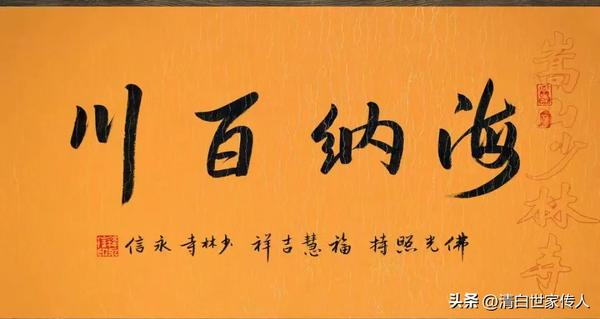 嵩山少林寺
海纳百川
佛光照持 福慧吉祥 少林寺 永信
头条 @清白世家传人